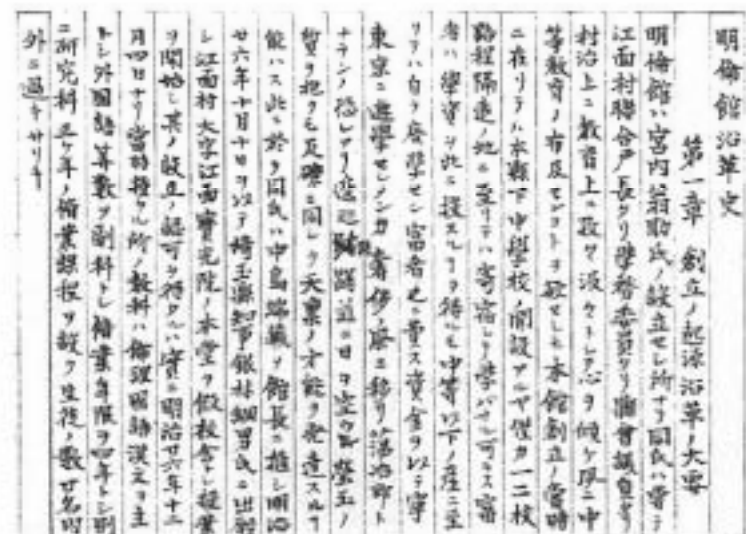 明倫館沿革史
第一章 創立ノ起源沿革ノ大要
明倫館ハ宮内翁助氏ノ設立セシ所ナリ同氏ハ嘗テ
江面村聯合戸長タリ學務委員タリ縣會議員タリ
村治上ニ教育上ニ汲々トシテ心ヲ傾ケ夙ニ中
等教育ノ布及センコトヲ欲セシモ本館創立ノ當時
ニ在リテハ本縣下中學校ノ開設アルヤ僅カ一二校
路程隔遠ノ地ニ至リテハ寄宿シテ學バザル可ラス富
者ハ學資ヲ此ニ投スルヲ得ルモ中等以下ノ産ニ至
リテハ自ラ廢學セン富者之ニ費ス資金ヲ以テ寧
東京ニ遊學セシメンカ奢侈ノ風ニ移リ
ナランノ恐レアリ 日ヲ空
質ヲ抱クモ瓦礫ニ同シク天稟ノ才能ヲ発達スル
能ハス此ニ於テ同氏ハ中島端藏ヲ館長ニ推シ明治
廿六年十月十日ヲ以テ埼玉縣知事銀林綱男氏ニ出願
シ江面村大字江面寳光院ノ本堂ヲ假校舎トシ授業
ヲ開始シ其ノ設立ノ認可ヲ得タルハ實ニ明治廿六年十二
月四日ナリ當時授クル所ノ教科ハ倫理國語漢文ヲ主
トシ外國語算數ヲ副科トシ修業年限ヲ四年トシ別
ニ研究科三ケ年ノ修業課程ヲ設ク生徒ノ數廿名内
外ニ過キサリキ